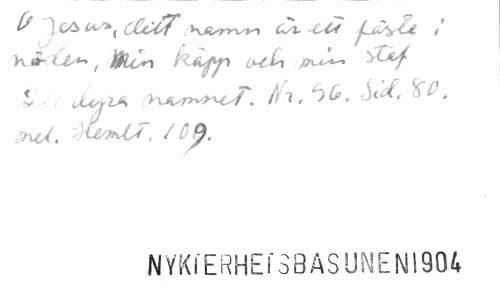 O Jesus, ditt namn är ett fäste i
nöden, Min käpp och min staf
Det dyra namnet. Nr. 96. Sid. 80.
mel. Hemlt. 109.
NYKTERHETSBASUNEN1904